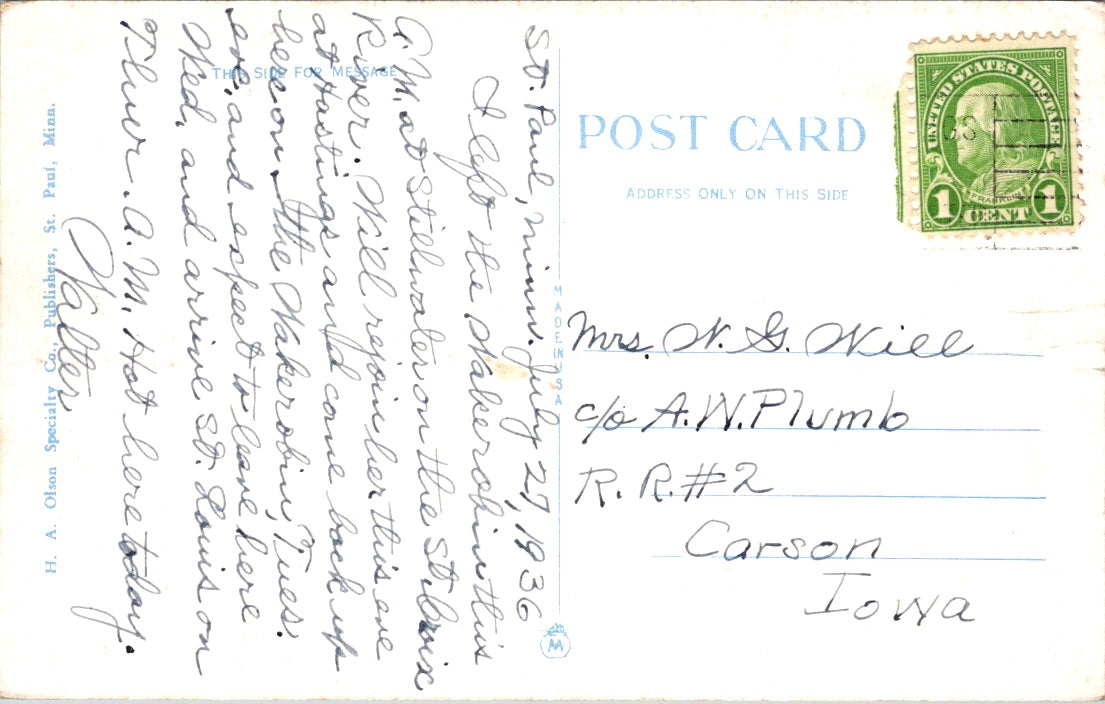 St. Paul, Minn. July 27, 1936
I left the Wakerobin this
A.M. at Stillwater on the St. Croix
River. Will rejoin her this eve
at Hastings and come back up
here on the Wakerobin, Tues.
eve, and expect to leave here
Wed. and arrive St. Louis on
Thur. A.M. Hot here today.
Walter
THIS SIDE FOR MESSAGE
H. A. Olson Specialty Co., Publishers, St. Paul, Minn.
MADE IN USA
POST CARD
ADDRESS ONLY ON THIS SIDE
UNITED STATES POSTAGE
FRANKLIN
1 CENT 1
Mrs. W. G. Will
c/o A.W. Plumb
R. R. #2
Carson
Iowa